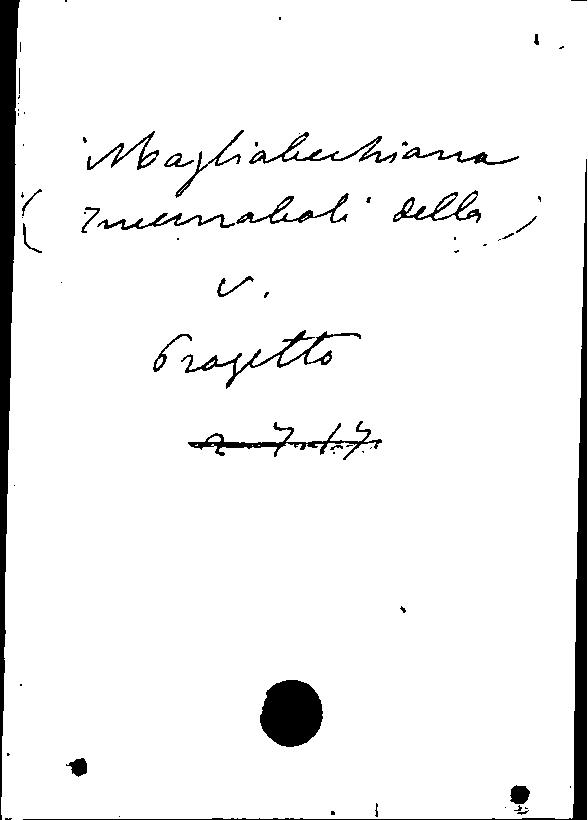 Magliabechiana
(Incunaboli della)
v.
Progetto